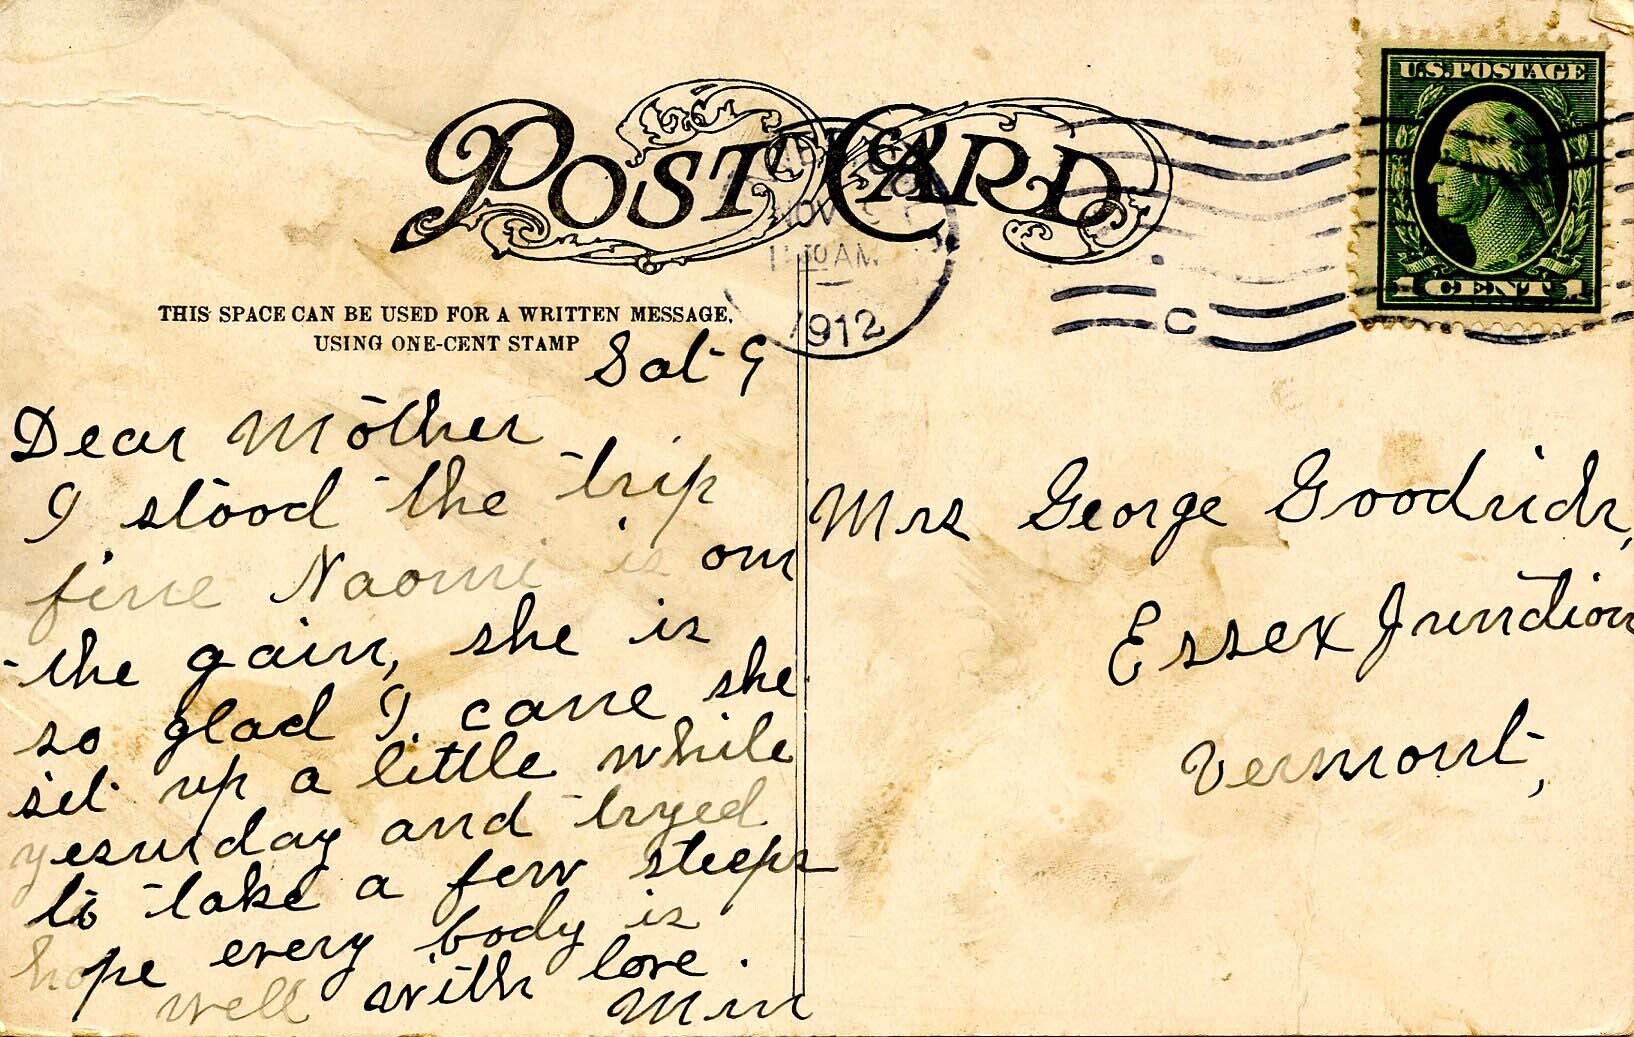 POST CARD
U.S. POSTAGE
1 CENT 1
NOV
30 AM
1912
C
THIS SPACE CAN BE USED FOR A WRITTEN MESSAGE,
USING ONE-CENT STAMP
Sat 9
Dear Mother
I stood the trip
fine Naomi is on
the gain, she is
so glad I came she
set up a little while
yesurday and tryed
to take a few steeps
hope every body is
well with love.
Min
Mrs George Goodrich,
Essex Junction
Vermont,